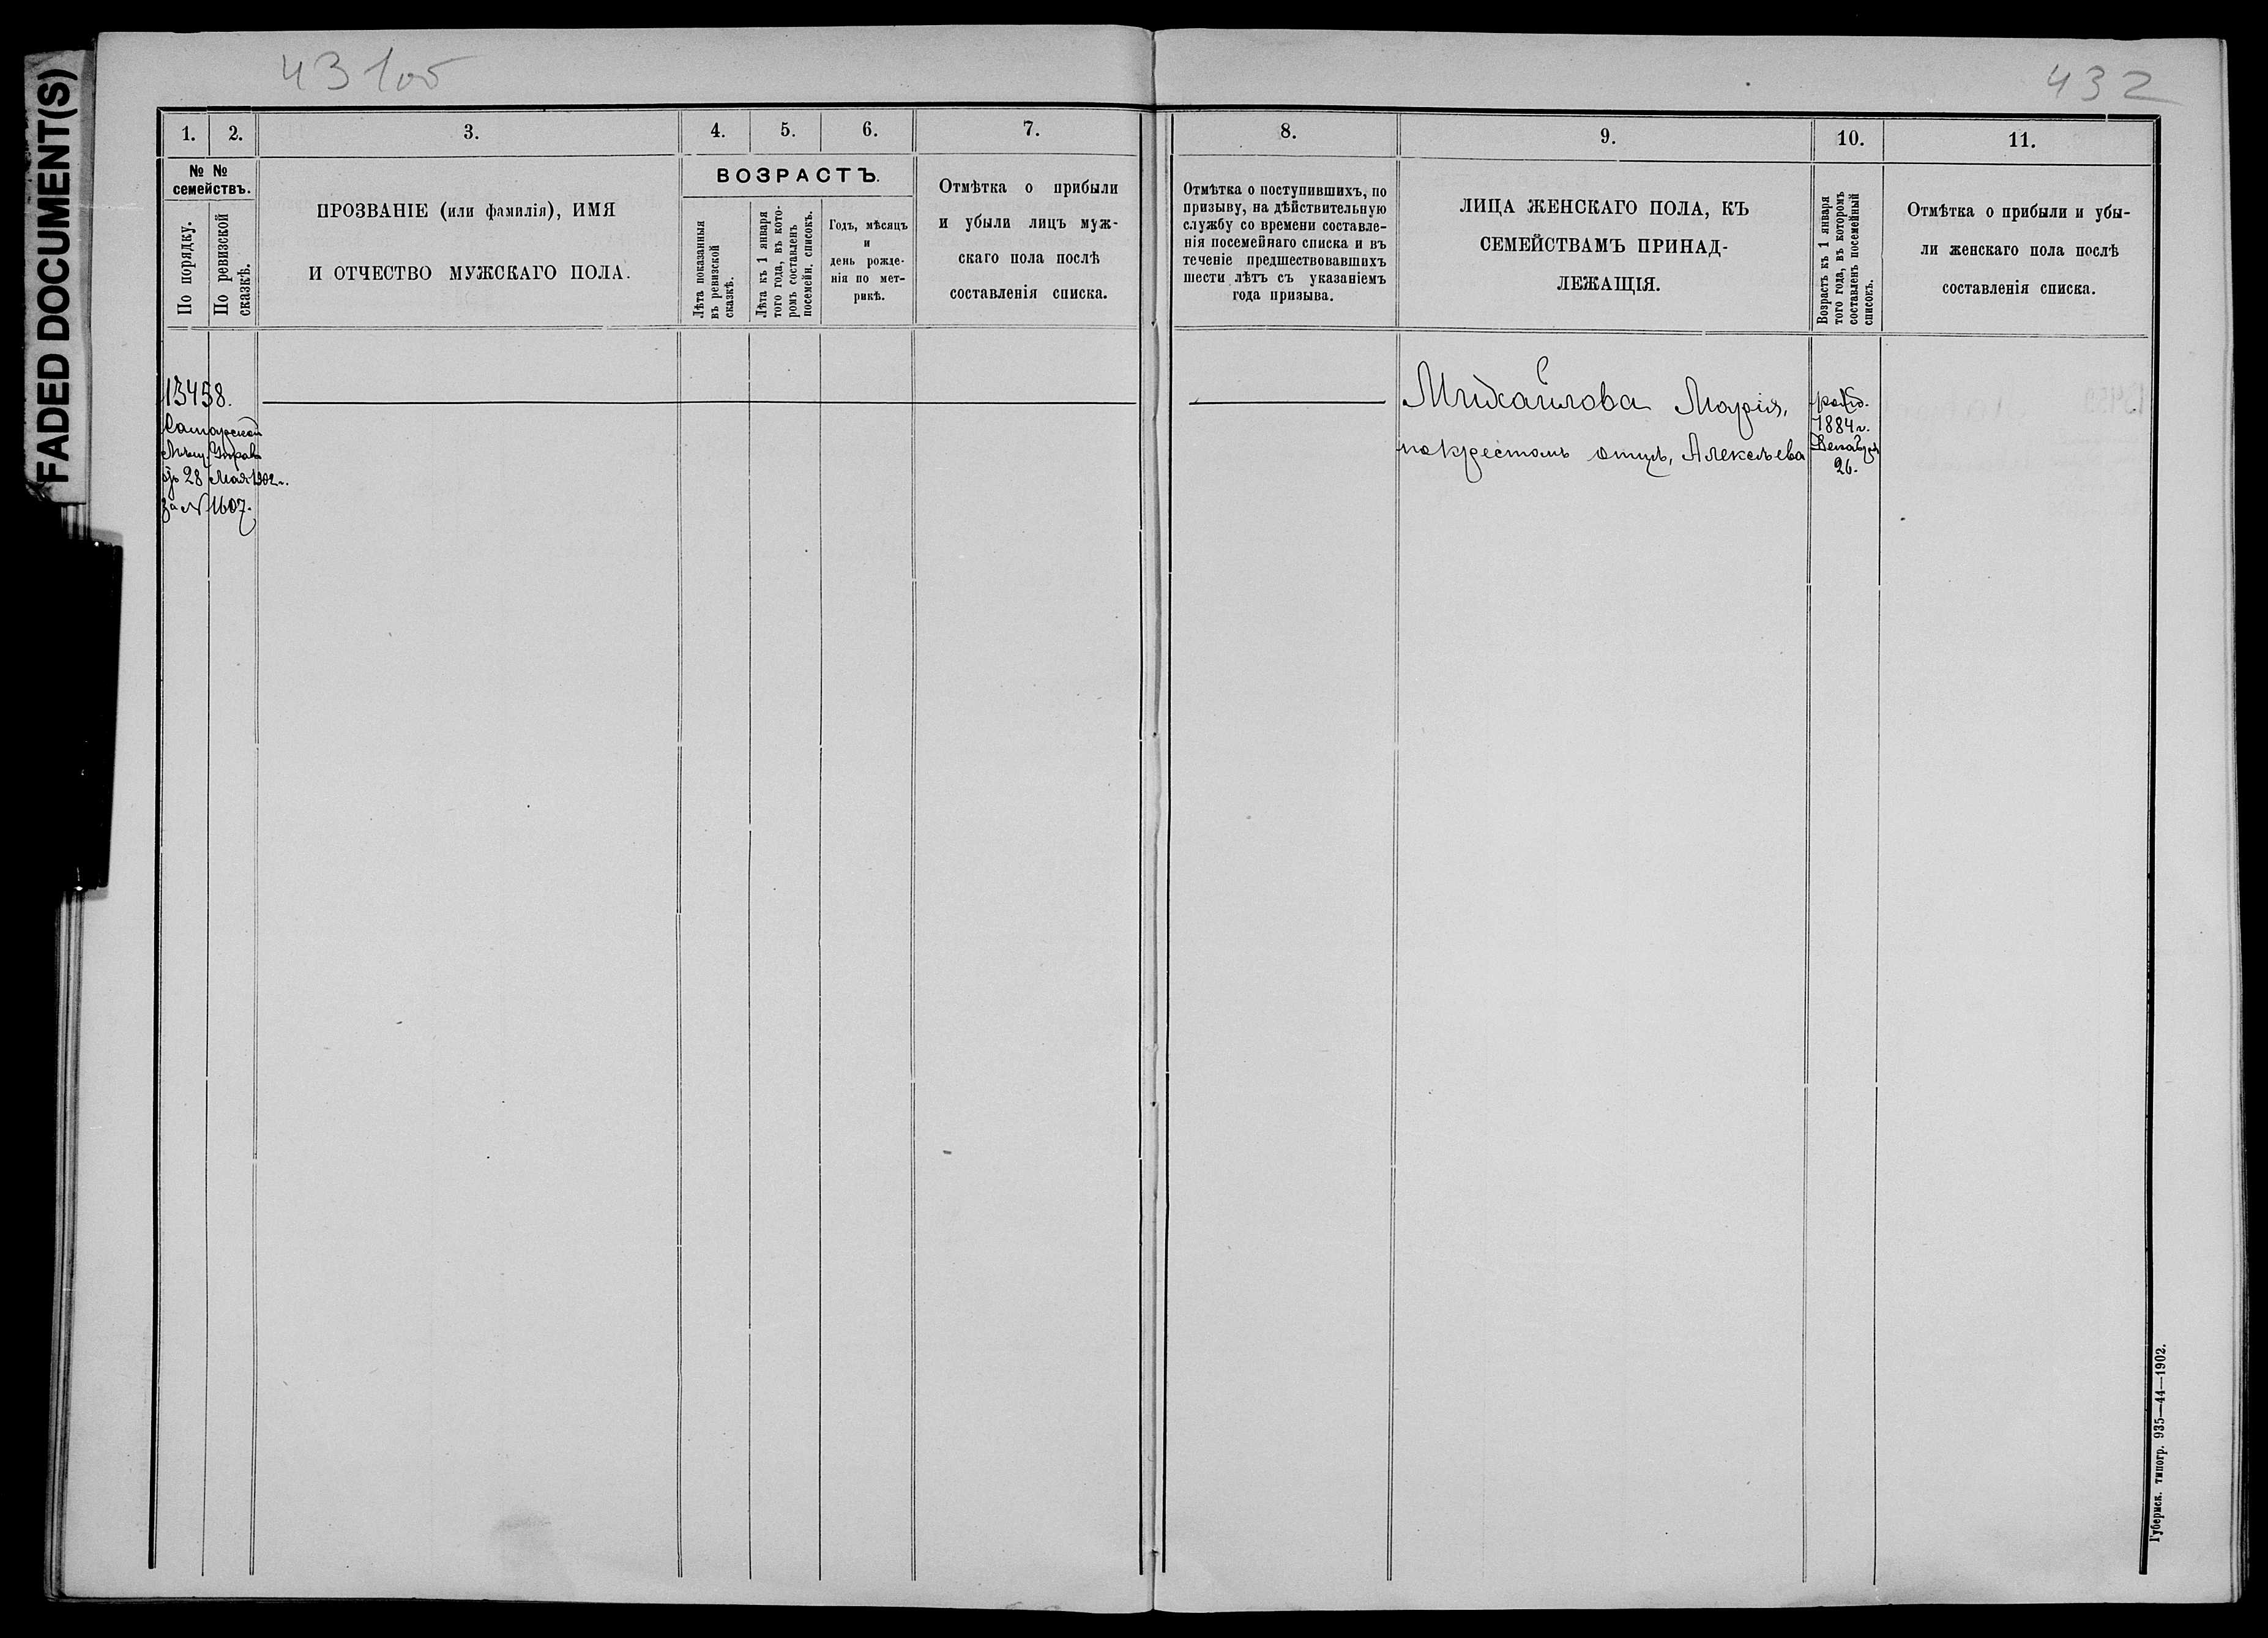 FADED DOCUMENT(S)
431об
432
1.
2.
3.
4.
5.
6.
7.
8.
9.
10.
11.
№ №
семействъ.
По порядку.
По ревизской
сказкѣ.
ПРОЗВАНІЕ (или фамилія), ИМЯ
И ОТЧЕСТВО МУЖСКАГО ПОЛА.
ВОЗРАСТЪ.
Лѣта показанныя
въ ревизской
сказкѣ.
Лѣта къ 1 января
того года, въ кото-
ромъ составленъ
посемейн. списокъ.
Годъ, мѣсяцъ
и
день рожде-
нія по мет-
рикѣ.
Отмѣтка о прибыли
и убыли лицъ муж-
скаго пола послѣ
составленія списка.
Отмѣтка о поступившихъ, по
призыву, на дѣйствительную
службу со времени составле-
нія посемейнаго списка и въ
теченіе предшествовавшихъ
шести лѣтъ съ указаніемъ
года призыва.
ЛИЦА ЖЕНСКАГО ПОЛА, КЪ
СЕМЕЙСТВАМЪ ПРИНАД-
ЛЕЖАЩІЯ.
Возрастъ къ 1 января
того года, въ которомъ
составленъ посемейный
списокъ.
Отмѣтка о прибыли и убы-
ли женскаго пола послѣ
составленія списка.
13458.
Самарской
Мѣщ. Управ
28 Мая 1902 г.
за № 1607.
Михайлова Марія,
по крестномъ отцѣ, Алексѣева
рожд.
1884 г.
Декабря
26.
Губернск. типогр. 935—44—1902.